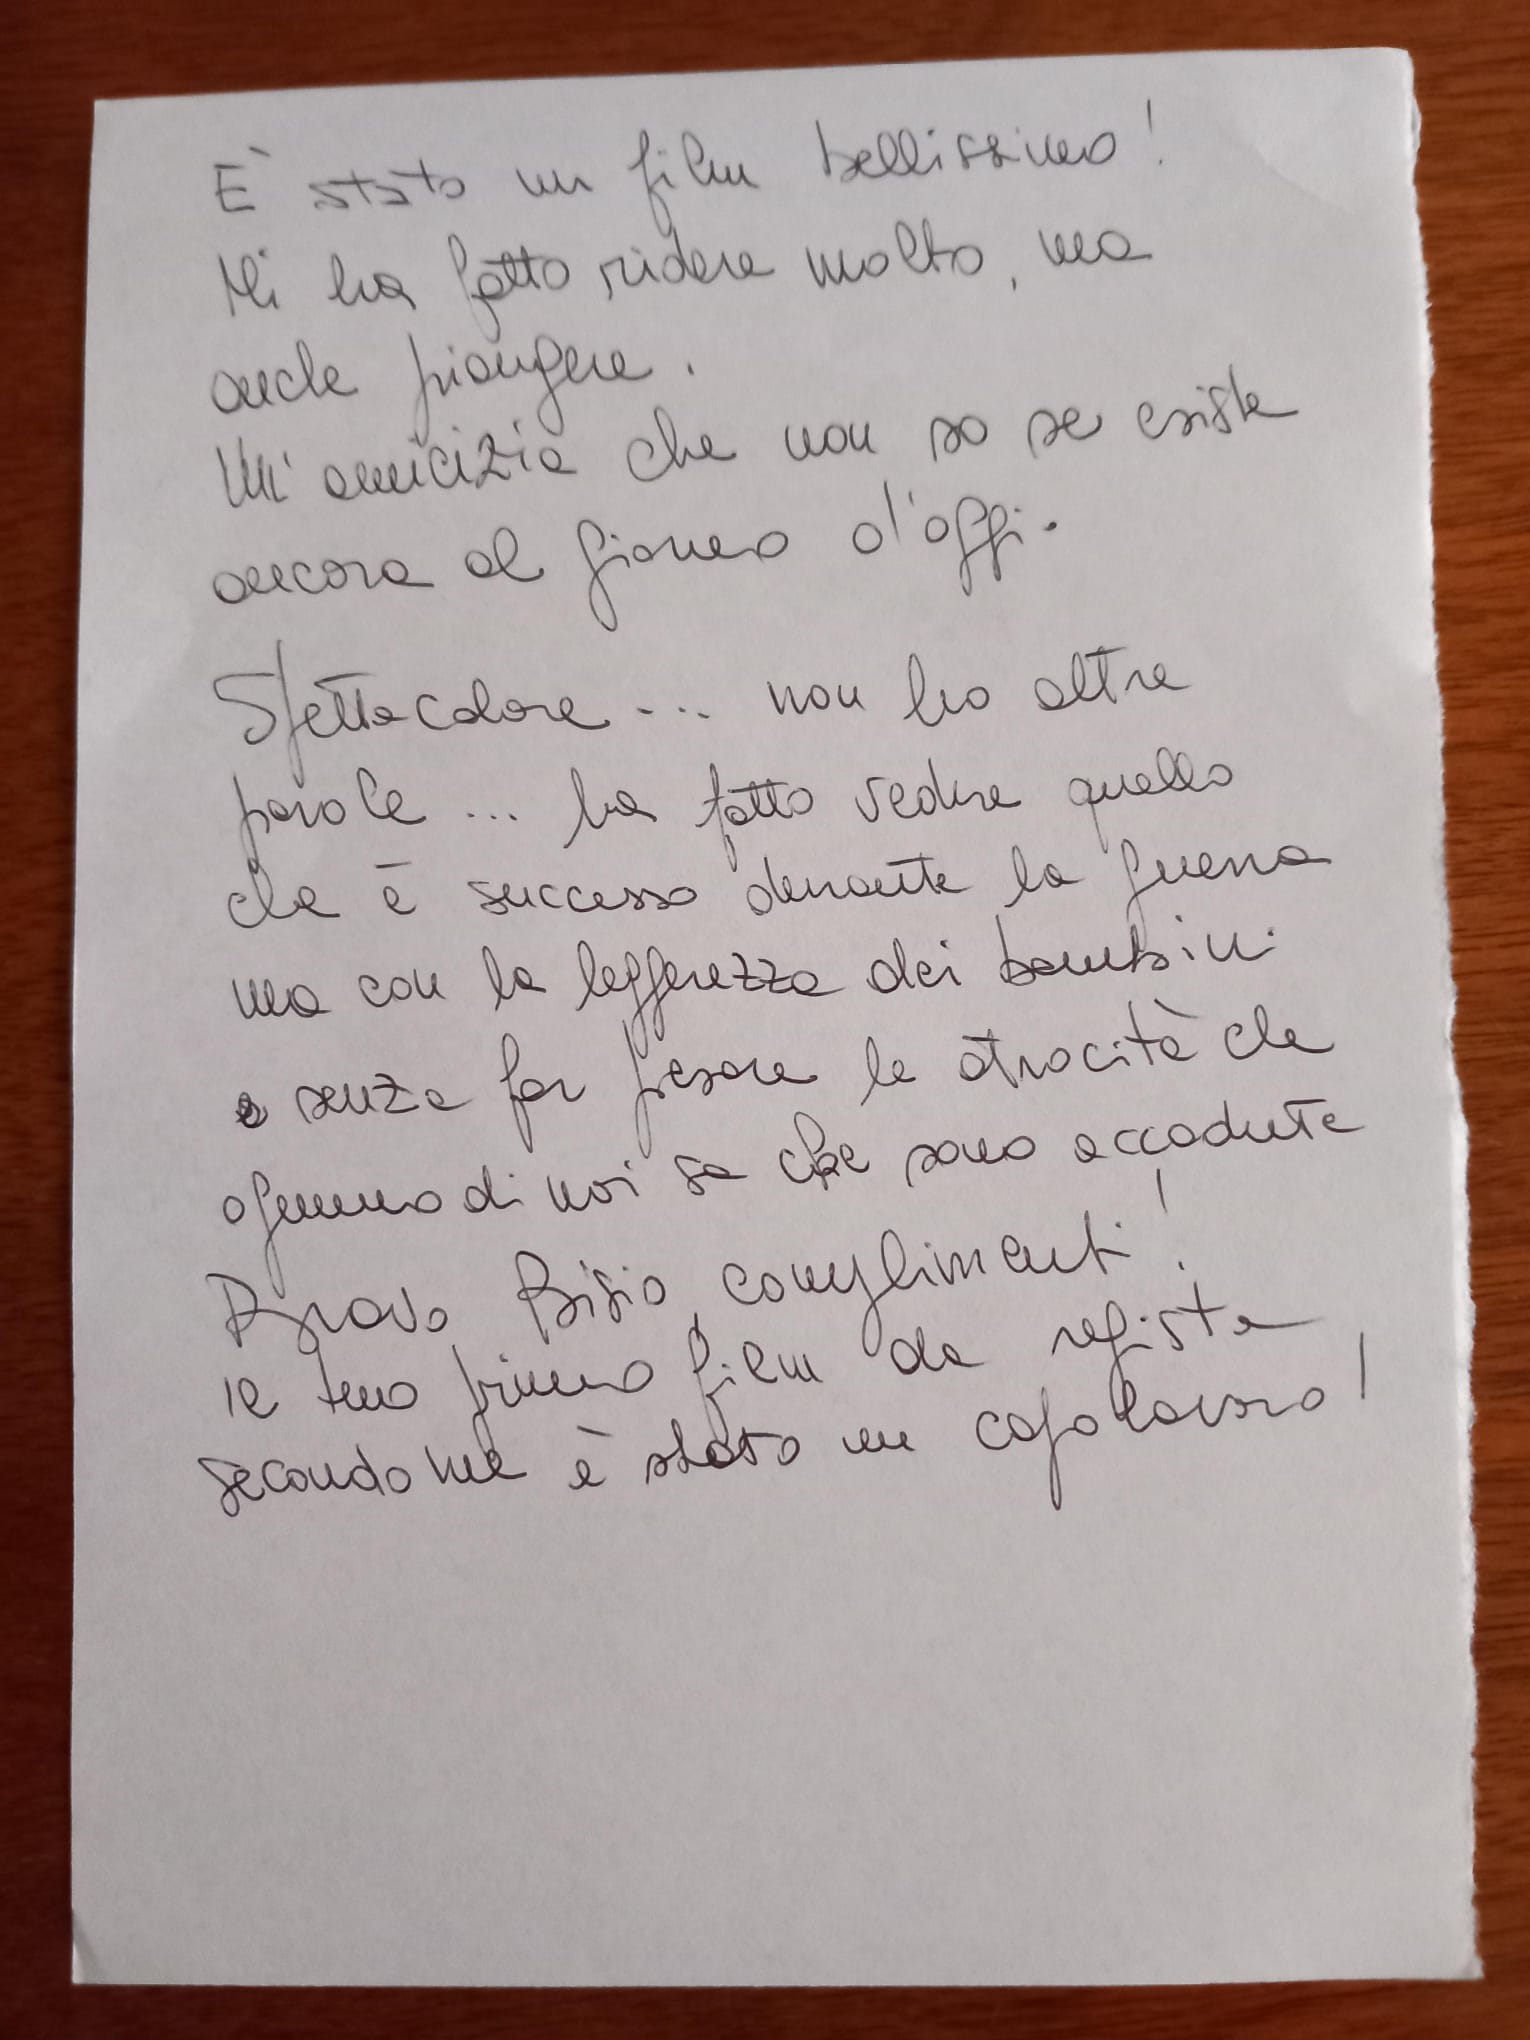 È stato un film bellissimo!
Mi ha fatto ridere molto, ma
anche piangere.
Un'amicizia che non so se esiste
ancora al giorno d'oggi.
Spettacolare... non ho altre
parole... ha fatto vedere quello
che è successo durante la guerra
ma con la leggerezza dei bambini
e senza far pesare le atrocità che
ognuno di noi sa che sono accadute
Bravo Bisio, complimenti!
il tuo primo film da regista
secondo me è stato un capolavoro!